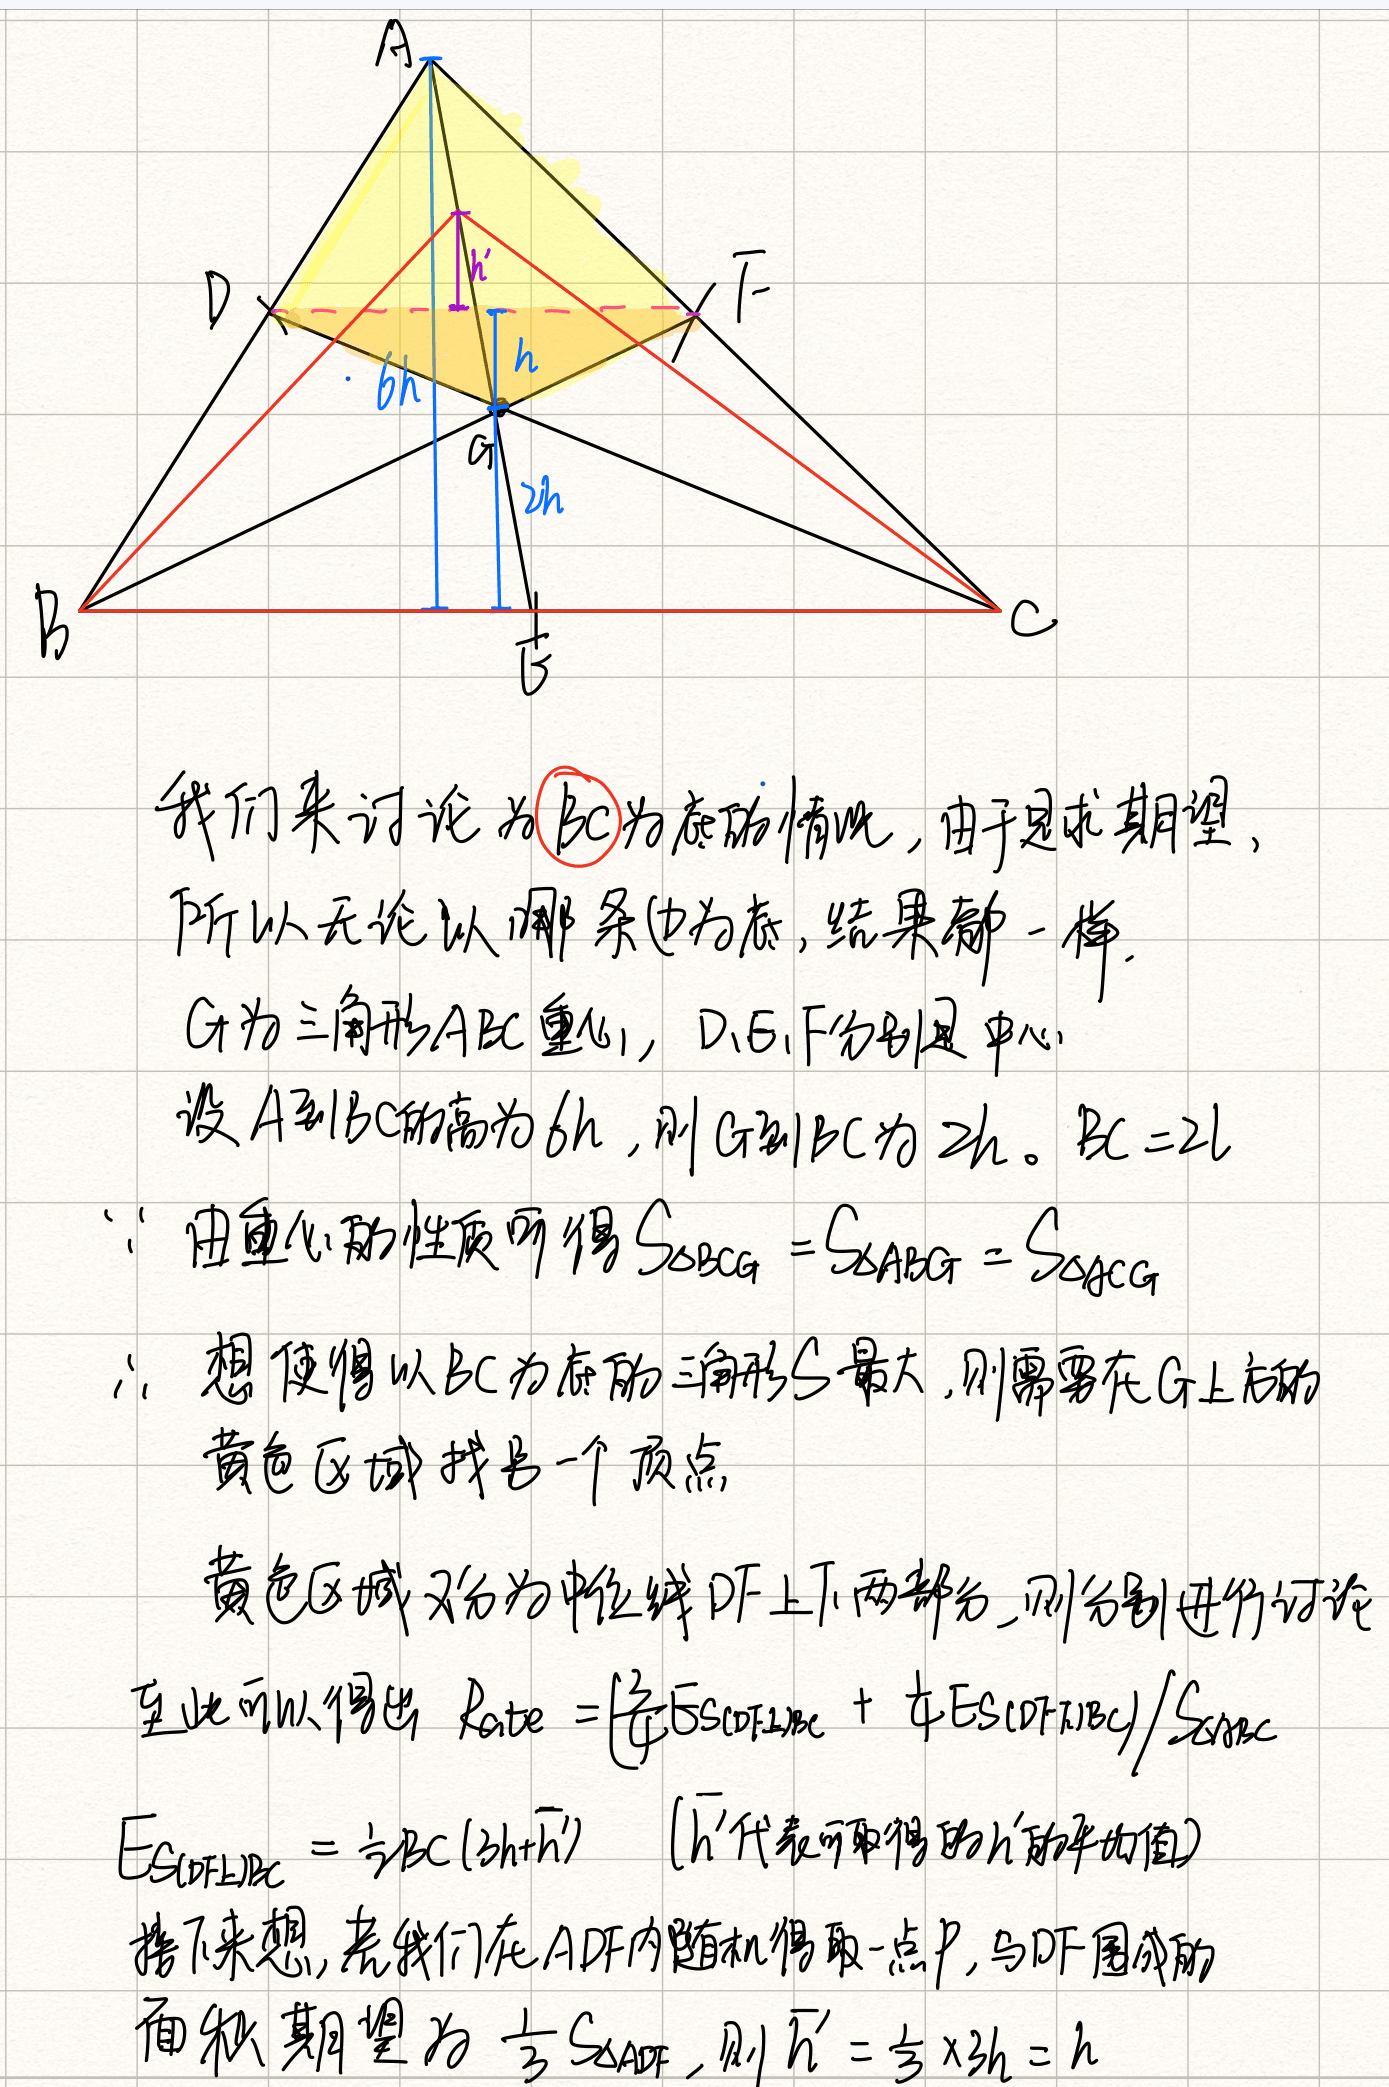 A
D
F
h'
h
6h
G
2h
B
E
C
我们来讨论为BC为底的情况，由于是求期望，
所以无论以哪条边为底，结果都一样.
G为三角形ABC重心，D、E、F分别是中心
设A到BC的高为6h，则G到BC为2h。BC=2l
∵ 由重心的性质可得S△BCG = S△ABG = S△ACG
∴ 想使得以BC为底的三角形S最大，则需要在G上方的
黄色区域找另一个顶点
黄色区域又分为中位线DF上下两部分，则分别进行讨论
至此可以得出 Rate = (3/4 ES(DF上)BC + 1/4 ES(DF下)BC)/S△ABC
ES(DF上)BC = 1/2 BC(3h+h̅') (h̅'代表可取得的h'的平均值)
接下来想，若我们在ADF内随机得取一点P，与DF围成的
面积期望为 1/3 S△ADF，则 h̅' = 1/3 ×3h = h